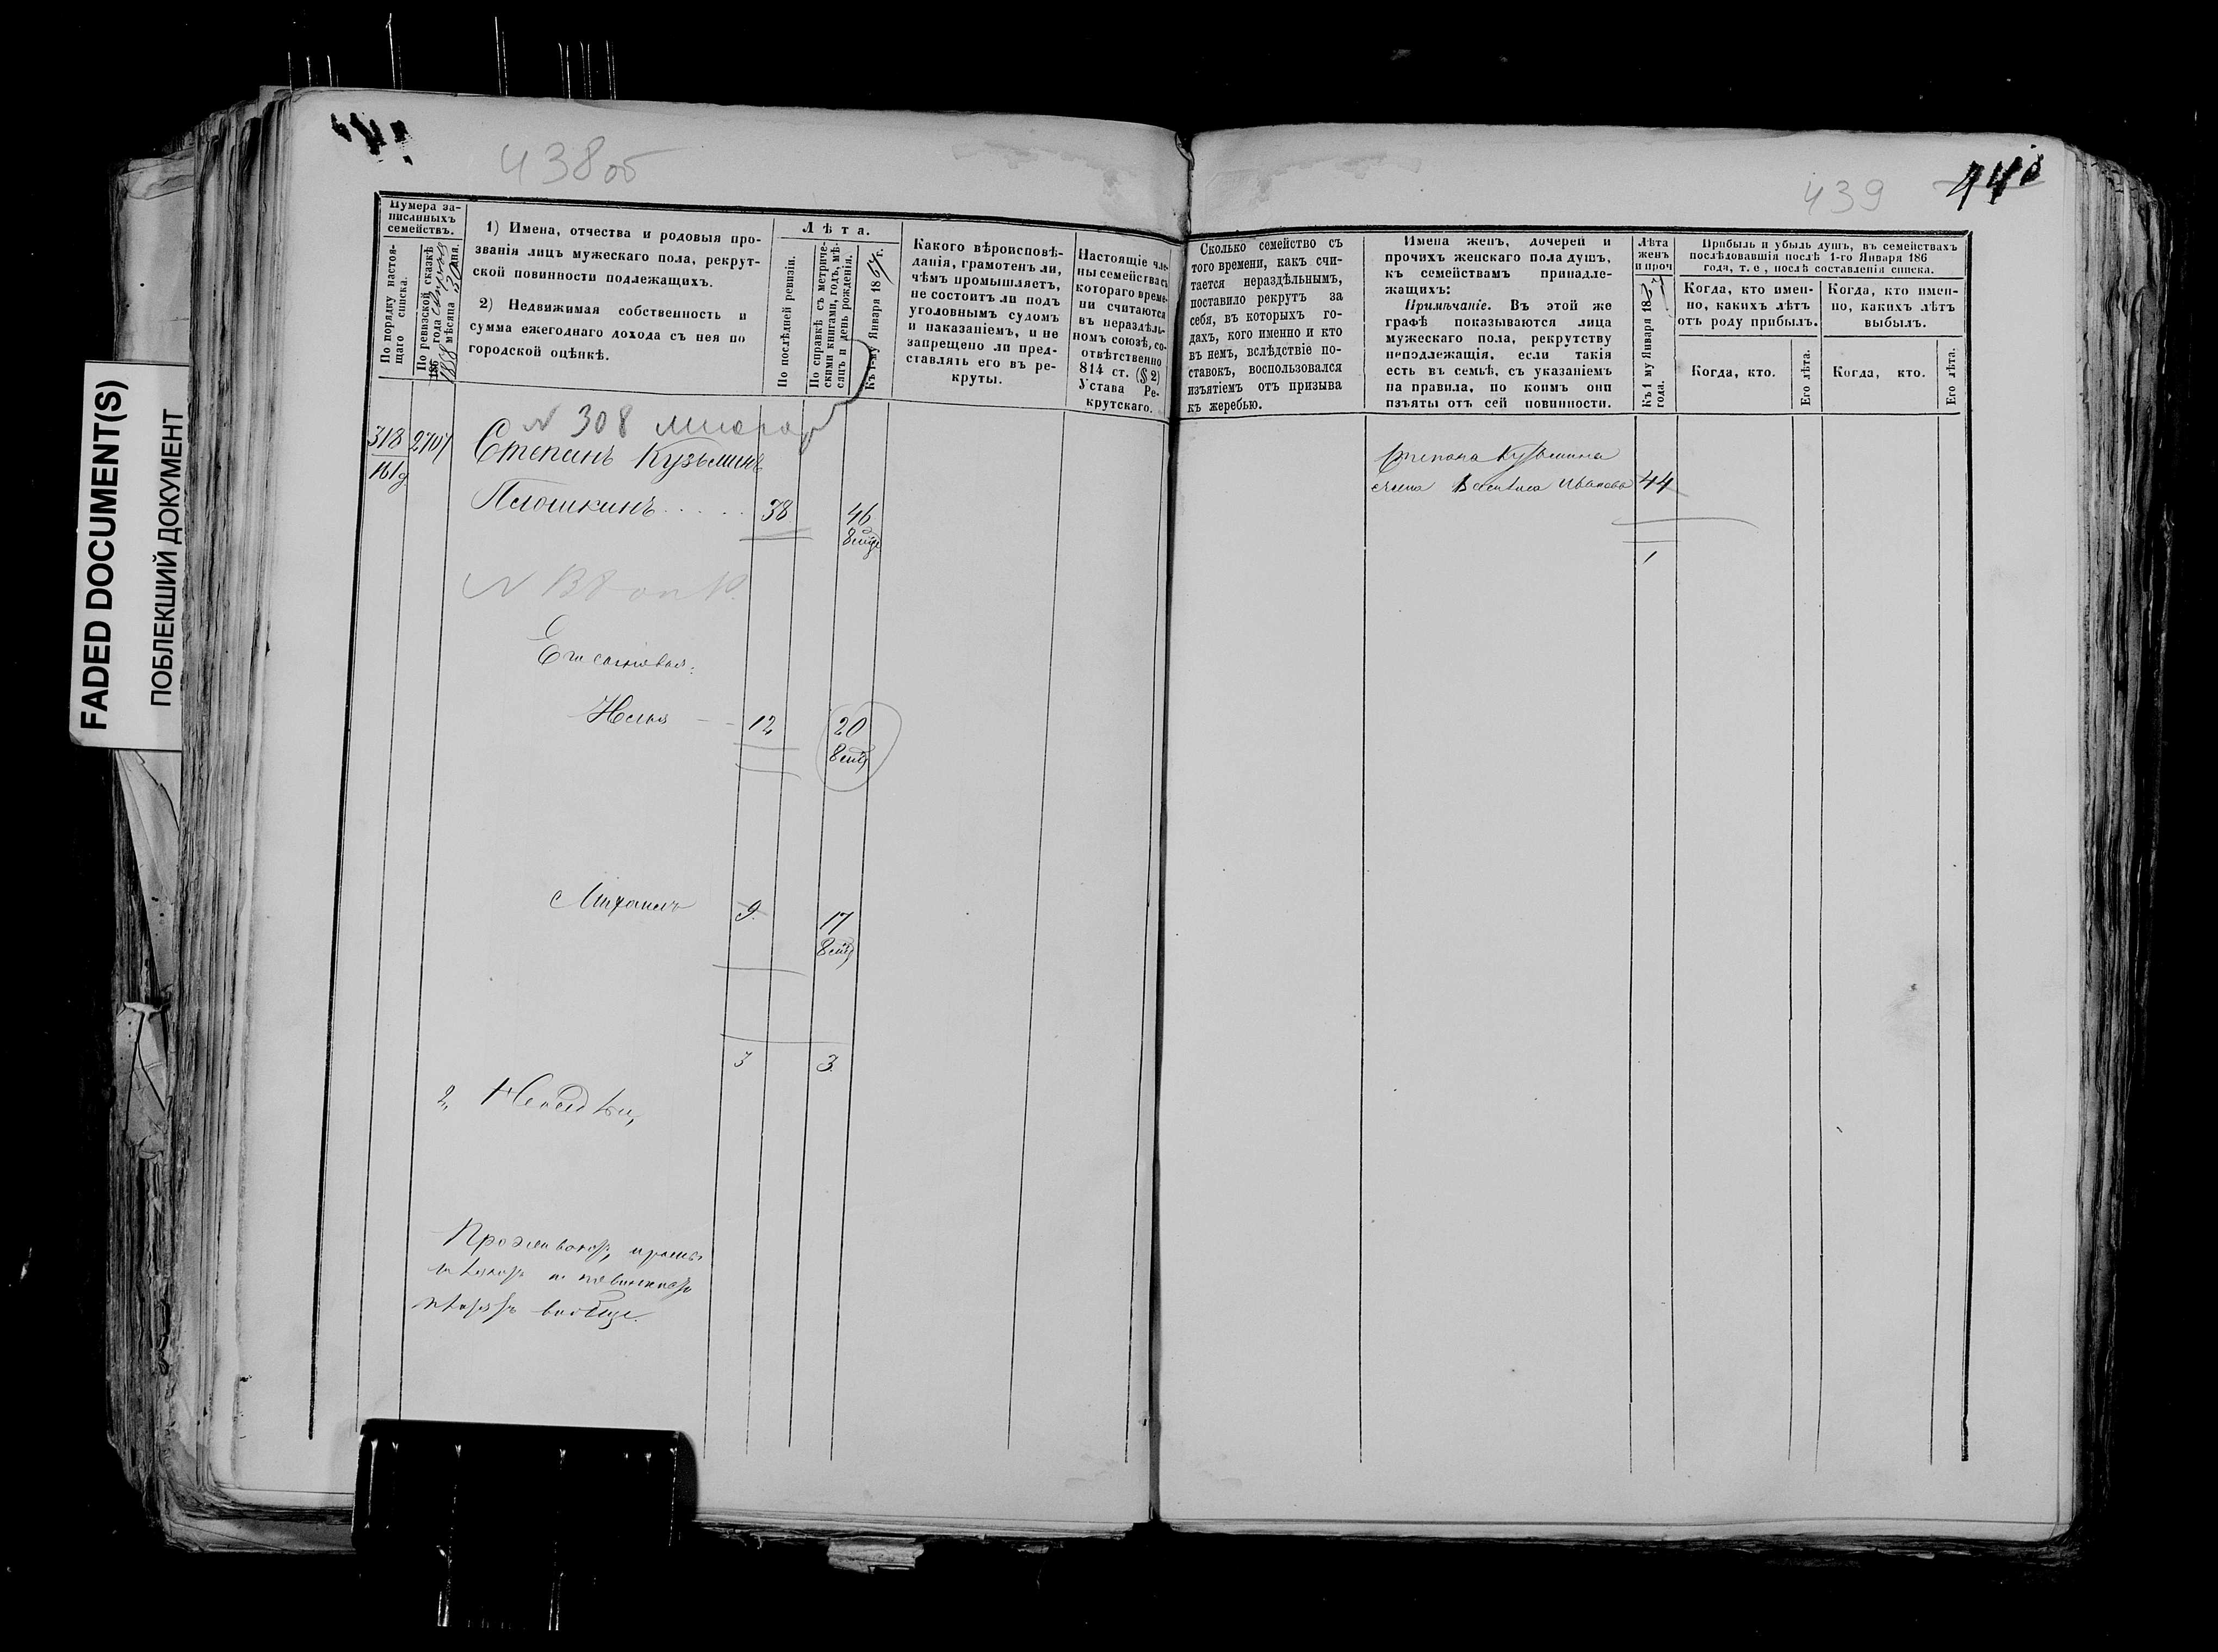 FADED DOCUMENT(S)
ПОБЛЕКШИЙ ДОКУМЕНТ
438об
Нумера за-
писанныхъ
семействъ.
По порядку настоя-
щаго списка.
По ревизской сказкѣ
186 года
1858 мѣсяца 30 дня.
1) Имена, отчества и родовыя про-
званія лицъ мужескаго пола, рекрут-
ской повинности подлежащихъ.
2) Недвижимая собственность и
сумма ежегоднаго дохода съ нея по
городской оцѣнкѣ.
Лѣта.
По послѣдней ревизіи.
По справкѣ съ метриче-
скими книгами, годъ, мѣ-
сяцъ и день рожденія.
Къ 1-му Января 1867 г.
Какого вѣроисповѣ-
данія, грамотенъ ли,
чѣмъ промышляетъ,
не состоитъ ли подъ
уголовнымъ судомъ
и наказаніемъ, и не
запрещено ли пред-
ставлять его въ ре-
круты.
Настоящіе чле-
ны семейства съ
котораго време-
ни считаются
въ нераздѣль-
номъ союзѣ, со-
отвѣтственно
814 ст. (§ 2)
Устава Ре-
крутскаго.
N 308
318 2707 Степанъ Кузьминъ
161
Плошкинъ . . . . . 38 46
Его сыновья:
Илья - - 12 20
Михаилъ 9 17
3 3
2,,
вообще.
439
Сколько семейство съ
того времени, какъ счи-
тается нераздѣльнымъ,
поставило рекрутъ за
себя, въ которыхъ го-
дахъ, кого именно и кто
въ немъ, вслѣдствіе по-
ставокъ, воспользовался
изъятіемъ отъ призыва
къ жеребью.
Имена женъ, дочерей и
прочихъ женскаго пола душъ,
къ семействамъ принадле-
жащихъ:
Примѣчаніе. Въ этой же
графѣ показываются лица
мужескаго пола, рекрутству
неподлежащія, если такія
есть въ семьѣ, съ указаніемъ
на правила, по коимъ они
изъяты отъ сей повинности.
Лѣта
женъ
и проч
Къ 1 му Января 1867
года.
Прибыль и убыль душъ, въ семействахъ
послѣдовавшія послѣ 1-го Января 186
года, т. е , послѣ составленія списка.
Когда, кто имен-
но, какихъ лѣтъ
отъ роду прибылъ.
Когда, кто имен-
но, какихъ лѣтъ
выбылъ.
Когда, кто.
Его лѣта.
Когда, кто.
Его лѣта.
Степана Кузьмина
жена Василиса Иванова 44
1